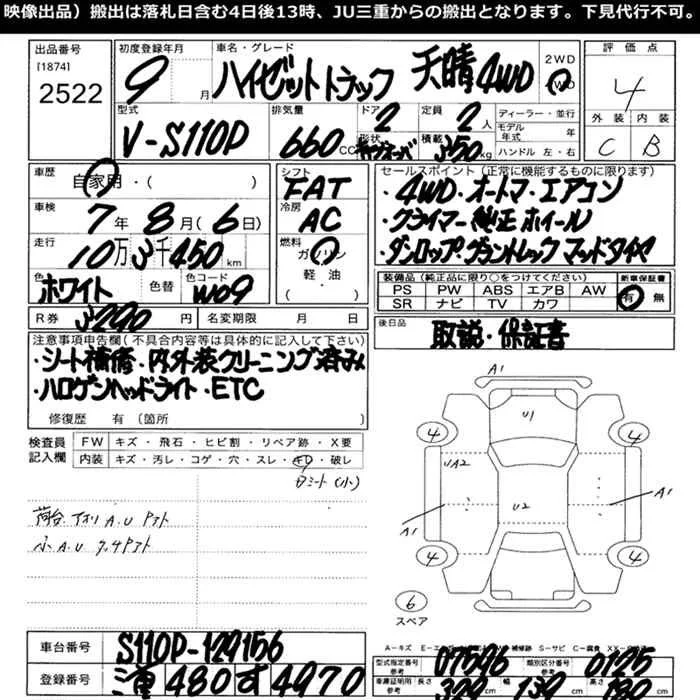 映像出品）搬出は落札日含む4日後13時、JU三重からの搬出となります。下見代行不可。
出品番号 [1874] 2522
初度登録年月 9 月
車名・グレード ハイゼットトラック 天晴4WD
2WD 4WD
評価点 4
外装 C 内装 B
型式 V-S110P
排気量 660 CC
ドア 2 形状
定員 2 人 積載 350 kg
ディーラー・並行
モデル年式 年
ハンドル 左・右
車歴 自家用・( )
シフト FAT
車検 7 年 8 月 (6 日)
冷房 AC
走行 10 万 3 千 450 km
燃料 ガソリン 軽・油 ( )
色 ホワイト 色替 色コード W09
R券 円 名変期限 月 日
セールスポイント（正常に機能するものに限ります）
・4WD・オートマ・エアコン
・クライマー純正ホイール
・ダンロップ・グラントレックマッドタイヤ
装備品（純正品に限り○をつけてください） 新車保証書
PS PW ABS エアB AW
SR ナビ TV カワ
有・無
後日品 取説・保証書
注意事項申告欄(不具合内容等は具体的に記入して下さい)
・シート補修・内外装クリーニング済み
・ハロゲンヘッドライト・ETC
修復歴 有〔箇所 〕
検査員記入欄 FW キズ・飛石・ヒビ割・リペア跡・X要
内装 キズ・汚レ・コゲ・穴・スレ・キレ・破レ
A1
U1
4 4
UA2
U2
A1 A1
4 4
6
スペア
車台番号 S110P-129156
登録番号 480 す 4970
型式指定番号 参考 07596 類別区分番号 参考 0125
車庫証明用 参考 長さ cm 幅 139 cm 高さ cm